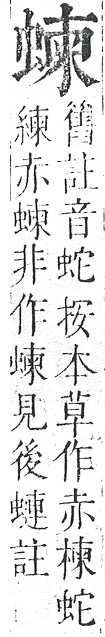 蝀
舊註音蛇按本草作赤楝蛇
練赤蝀非作蝀見後䗴註